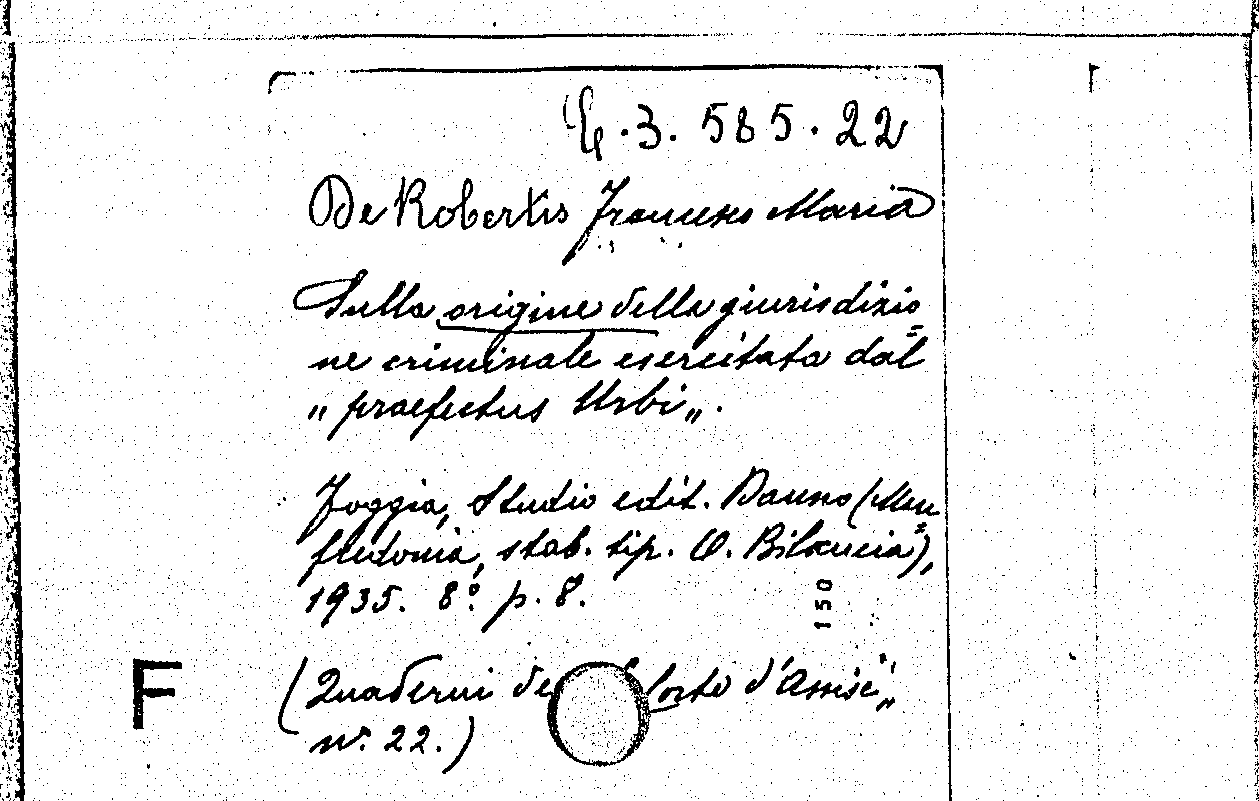 3. 585. 22
De Robertis Francesco Maria
Sulla origine della giurisdizio=
ne criminale esercitata dal
„praefectus Urbi„.
Foggia, Studio edit. Dauno (Man=
fredonia, stab. tip. O. Bilancia),
1935. 8º. p. 8.
150
F
(Quaderni de d'Assise„
nº. 22.)